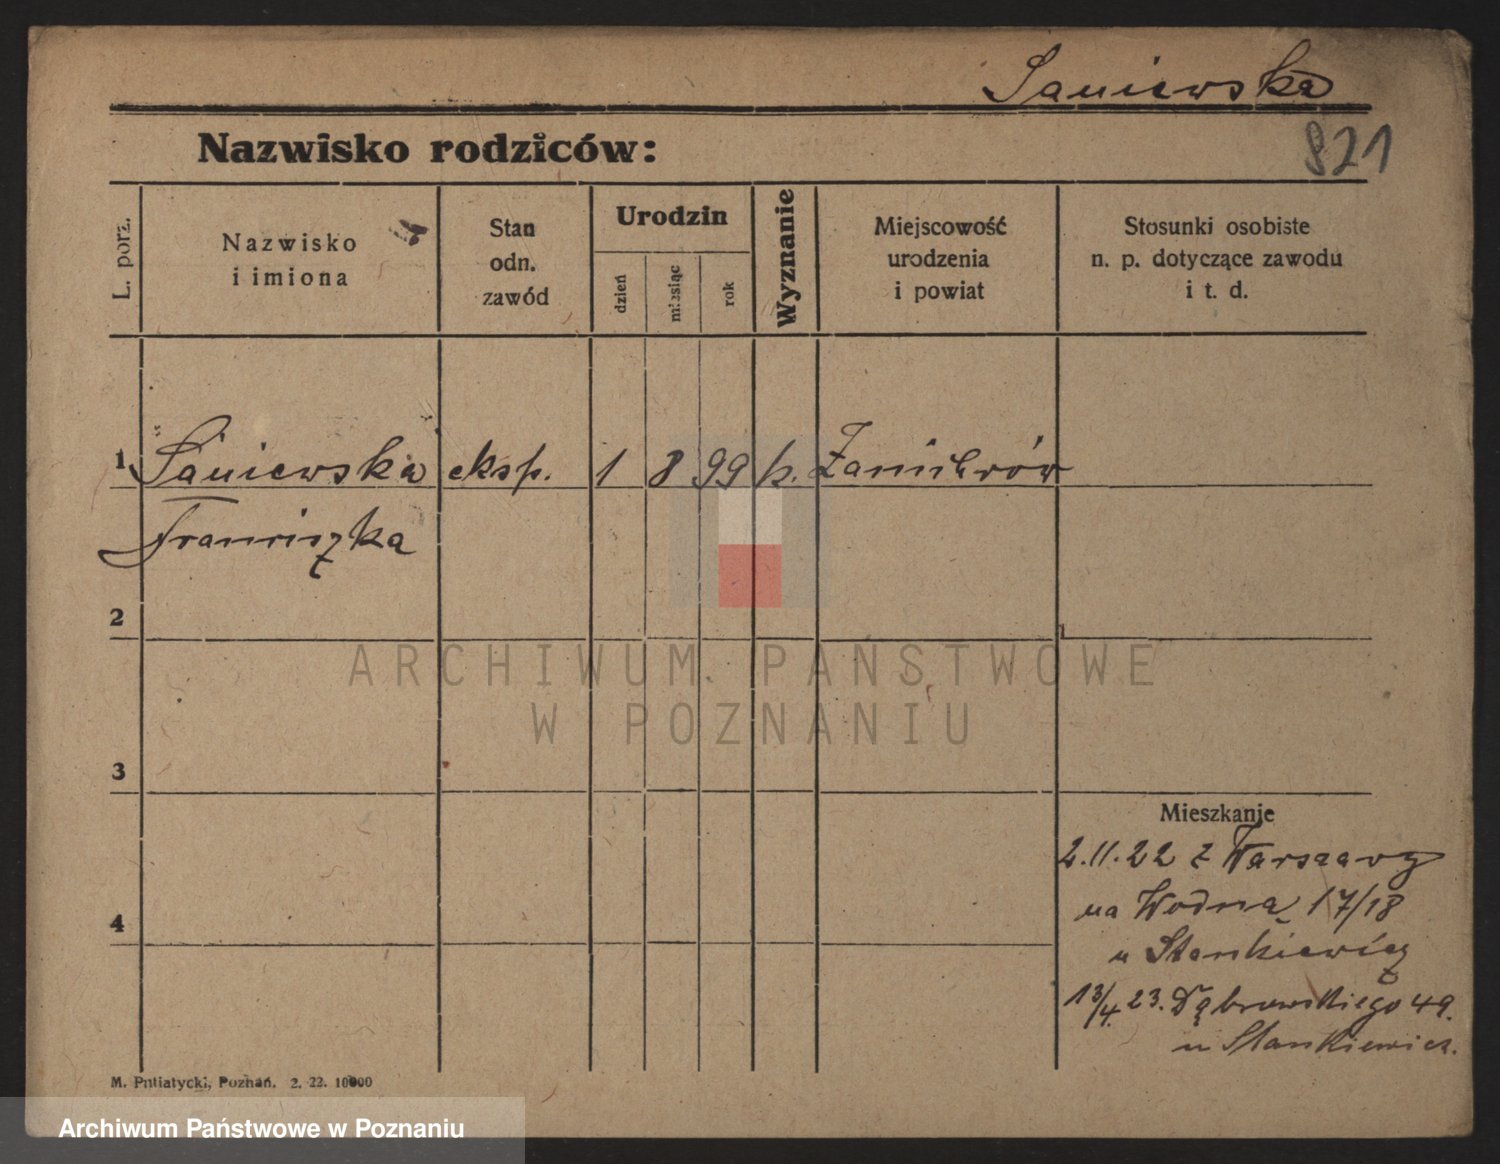 Saniewska
821
Nazwisko rodziców:
L. porz.
Nazwisko
i imiona
Stan
odn.
zawód
Urodzin
dzień
miesiąc
rok
Wyznanie
Miejscowość
urodzenia
i powiat
Stosunki osobiste
n. p. dotyczące zawodu
i t. d.
1 Saniewska eksp. 1 8 99 k. Zambrów
Franciszka
2
3
4
Mieszkanie
2.11.22 z Warszawy
na Wodną 17/18
u Stankiewicz
13/4.23. Dąbrowskiego 49.
u Stankiewicz.
M. Putiatycki, Poznań. 2. 22. 10000
ARCHIWUM PAŃSTWOWE
W POZNANIU
Archiwum Państwowe w Poznaniu